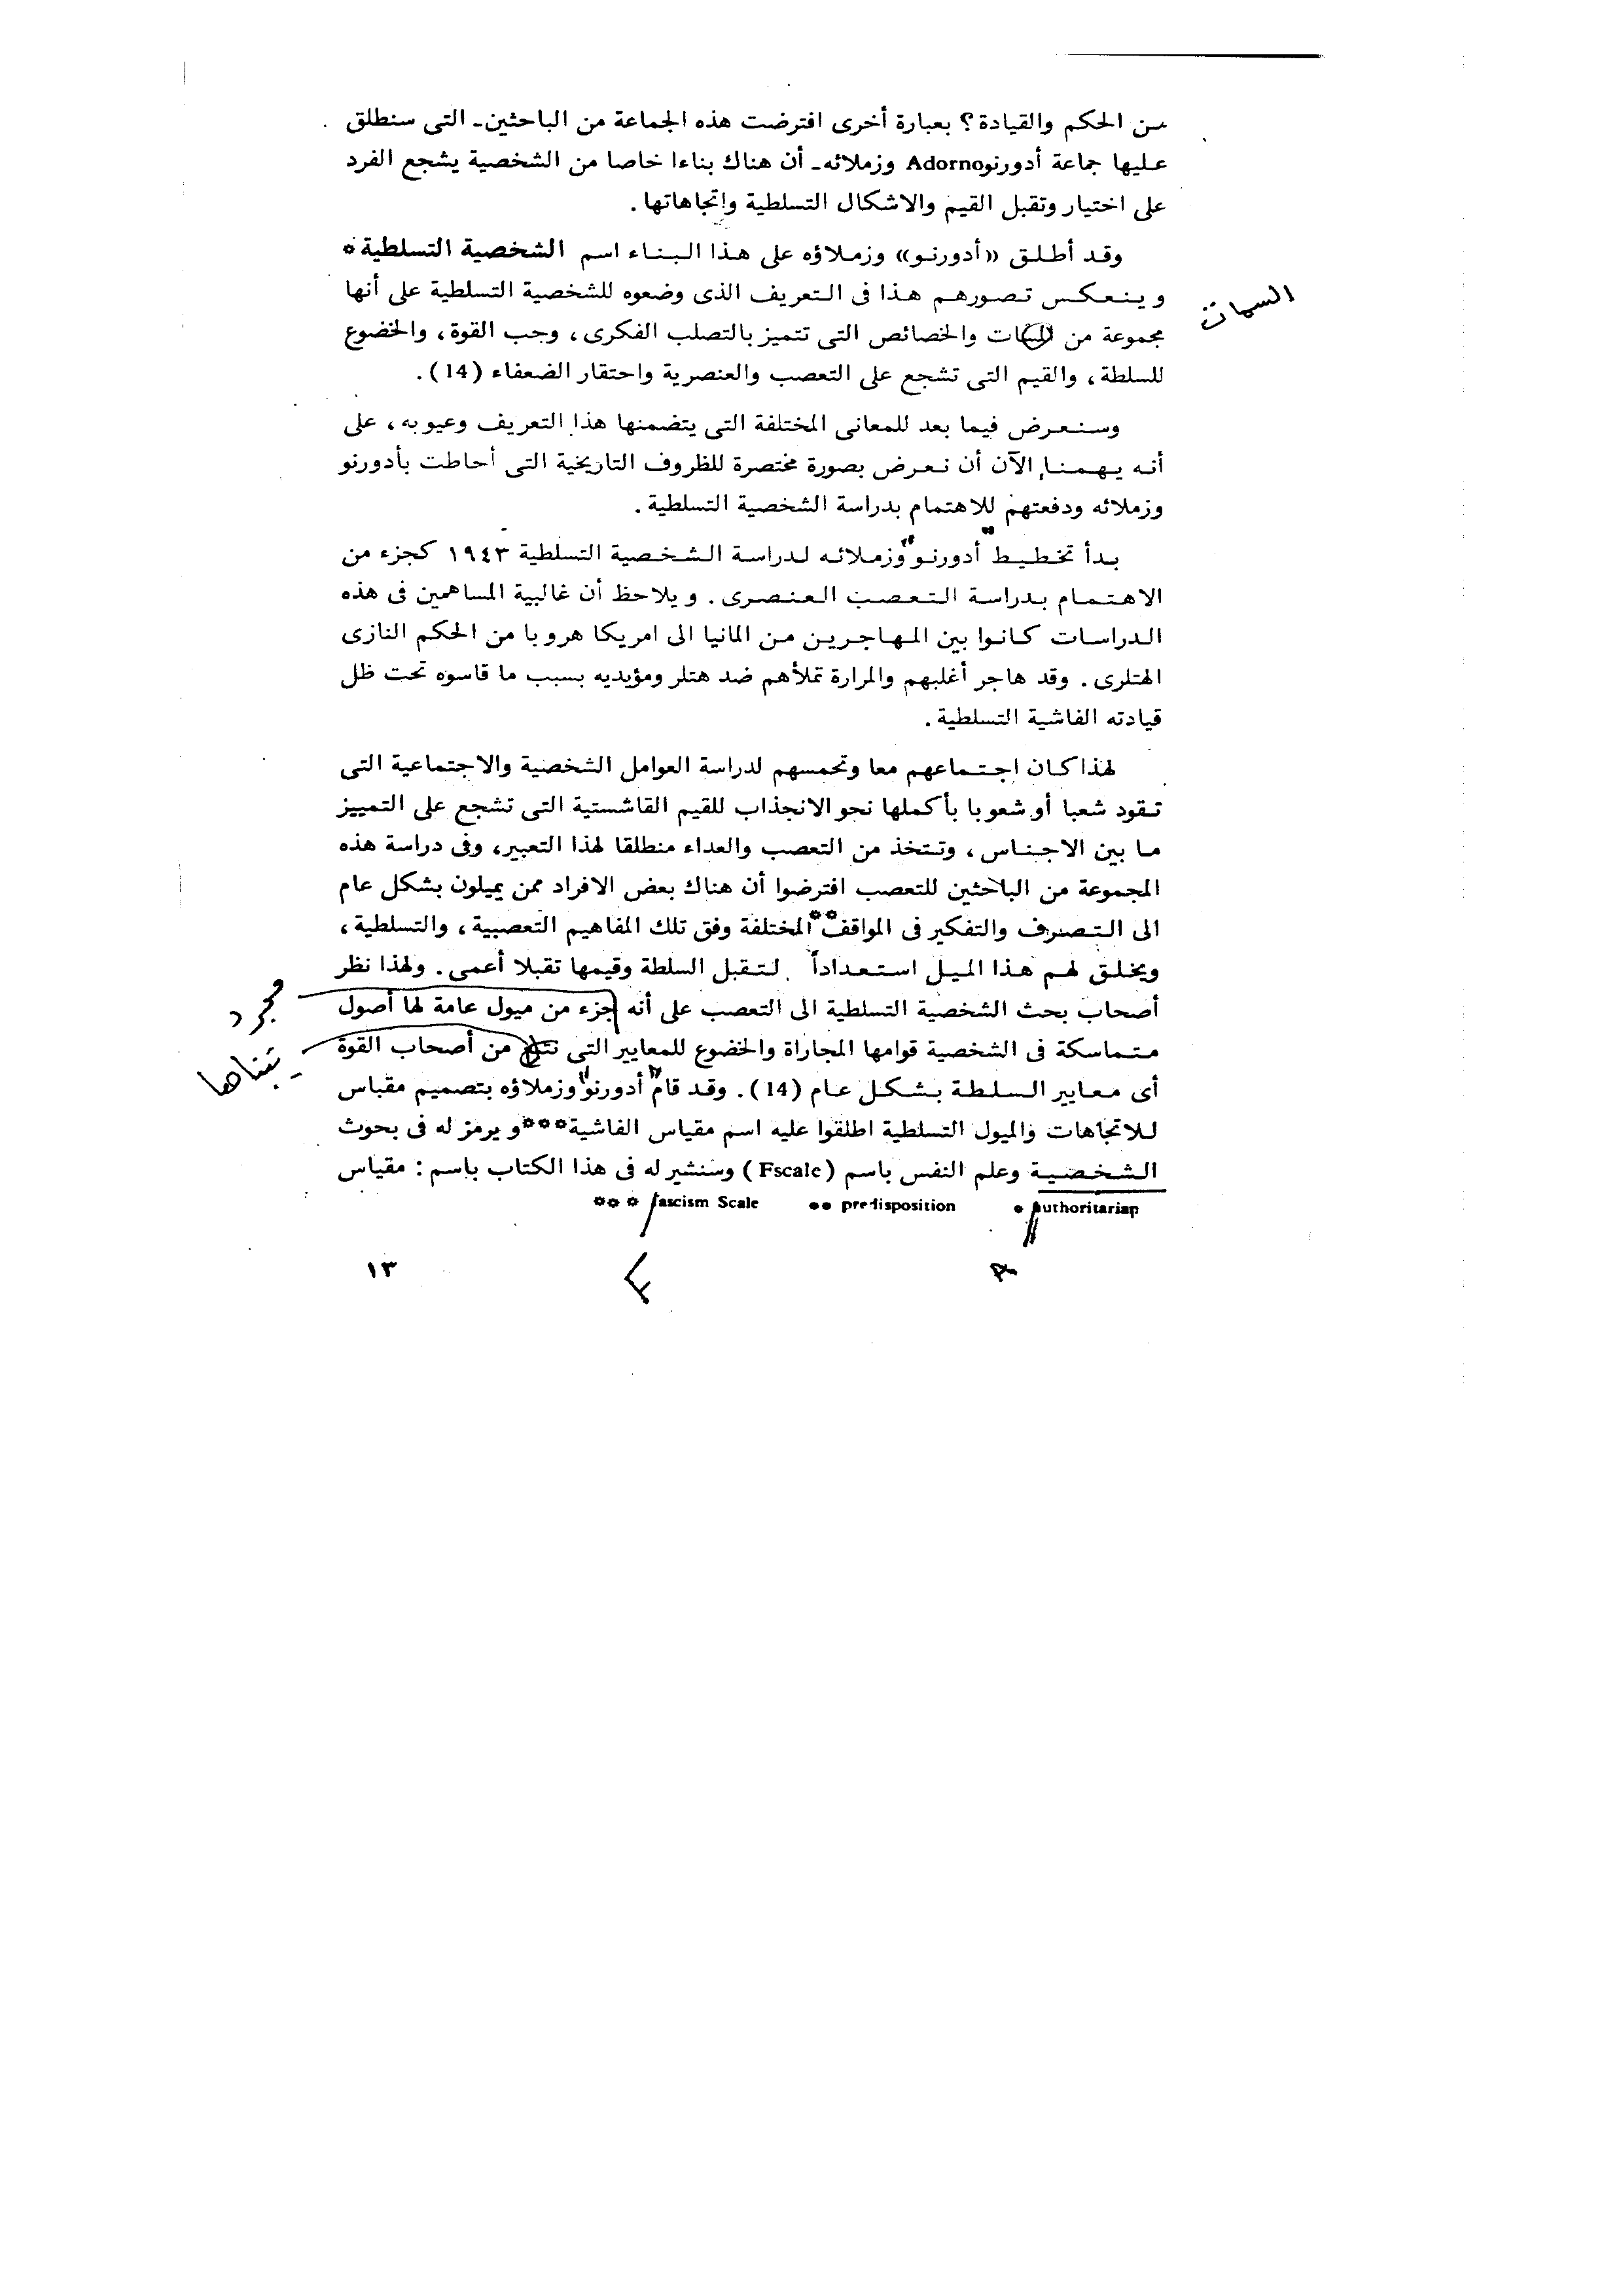 من الحكم والقيادة؟ بعبارة أخرى افترضت هذه الجماعة من الباحثين ـ التى سنطلق
عليها جماعة أدورنو Adorno وزملائه ـ أن هناك بناءا خاصا من الشخصية يشجع الفرد
على اختيار وتقبل القيم والاشكال التسلطية وإتجاهاتها.
وقد أطلق «أدورنو» وزملاؤه على هذا البناء اسم الشخصية التسلطية *
وينعكس تصورهم هذا فى التعريف الذى وضعوه للشخصية التسلطية على أنها
السمات
مجموعة من والخصائص التى تتميز بالتصلب الفكرى، وحب القوة، والخضوع
للسلطة، والقيم التى تشجع على التعصب والعنصرية واحتقار الضعفاء (14).
وسنعرض فيما بعد للمعانى المختلفة التى يتضمنها هذا التعريف وعيوبه، على
أنه يهمنا الآن أن نعرض بصورة مختصرة للظروف التاريخية التى أحاطت بأدورنو
وزملائه ودفعتهم للاهتمام بدراسة الشخصية التسلطية.
بدأ تخطيط "أدورنو" وزملائه لدراسة الشخصية التسلطية ١٩٤٣ كجزء من
الاهتمام بدراسة التعصب العنصرى. ويلاحظ أن غالبية المساهمين فى هذه
الدراسات كانوا بين المهاجرين من المانيا الى امريكا هروبا من الحكم النازى
الهتلرى. وقد هاجر أغلبهم والمرارة تملأهم ضد هتلر ومؤيديه بسبب ما قاسوه تحت ظل
قيادته الفاشية التسلطية.
لهذا كان اجتماعهم معا وتحمسهم لدراسة العوامل الشخصية والاجتماعية التى
تقود شعبا أو شعوبا بأكملها نحو الانجذاب للقيم القاشستية التى تشجع على التمييز
ما بين الاجناس، وتتخذ من التعصب والعداء منطلقا لهذا التعبير، وفى دراسة هذه
المجموعة من الباحثين للتعصب افترضوا أن هناك بعض الافراد ممن يميلون بشكل عام
الى التصرف والتفكير فى المواقف ** المختلفة وفق تلك المفاهيم التعصبية، والتسلطية،
ويخلق لهم هذا الميل استعداداً لتقبل السلطة وقيمها تقبلا أعمى. ولهذا نظر
مجرد
أصحاب بحث الشخصية التسلطية الى التعصب على أنه جزء من ميول عامة لها أصول
متماسكة فى الشخصية قوامها المجاراة والخضوع للمعايير التى من أصحاب القوة
يتبناها
أى معايير السلطة بشكل عام (14). وقد قام "أدورنو" وزملاؤه بتصميم مقباس
للاتجاهات والميول التسلطية اطلقوا عليه اسم مقياس الفاشية *** ويرمز له فى بحوث
الشخصية وعلم النفس باسم (Fscale) وسنشير له فى هذا الكتاب باسم: مقياس
* authoritarian ** predisposition *** fascism Scale
A
F
١٣